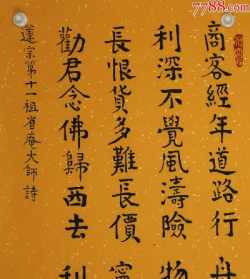 7788.com
商客經年道路行丹
利深不覺風濤險物
長恨貨多難長價寧
勸君念佛歸西去利
蓮宗第十一祖省庵大師詩